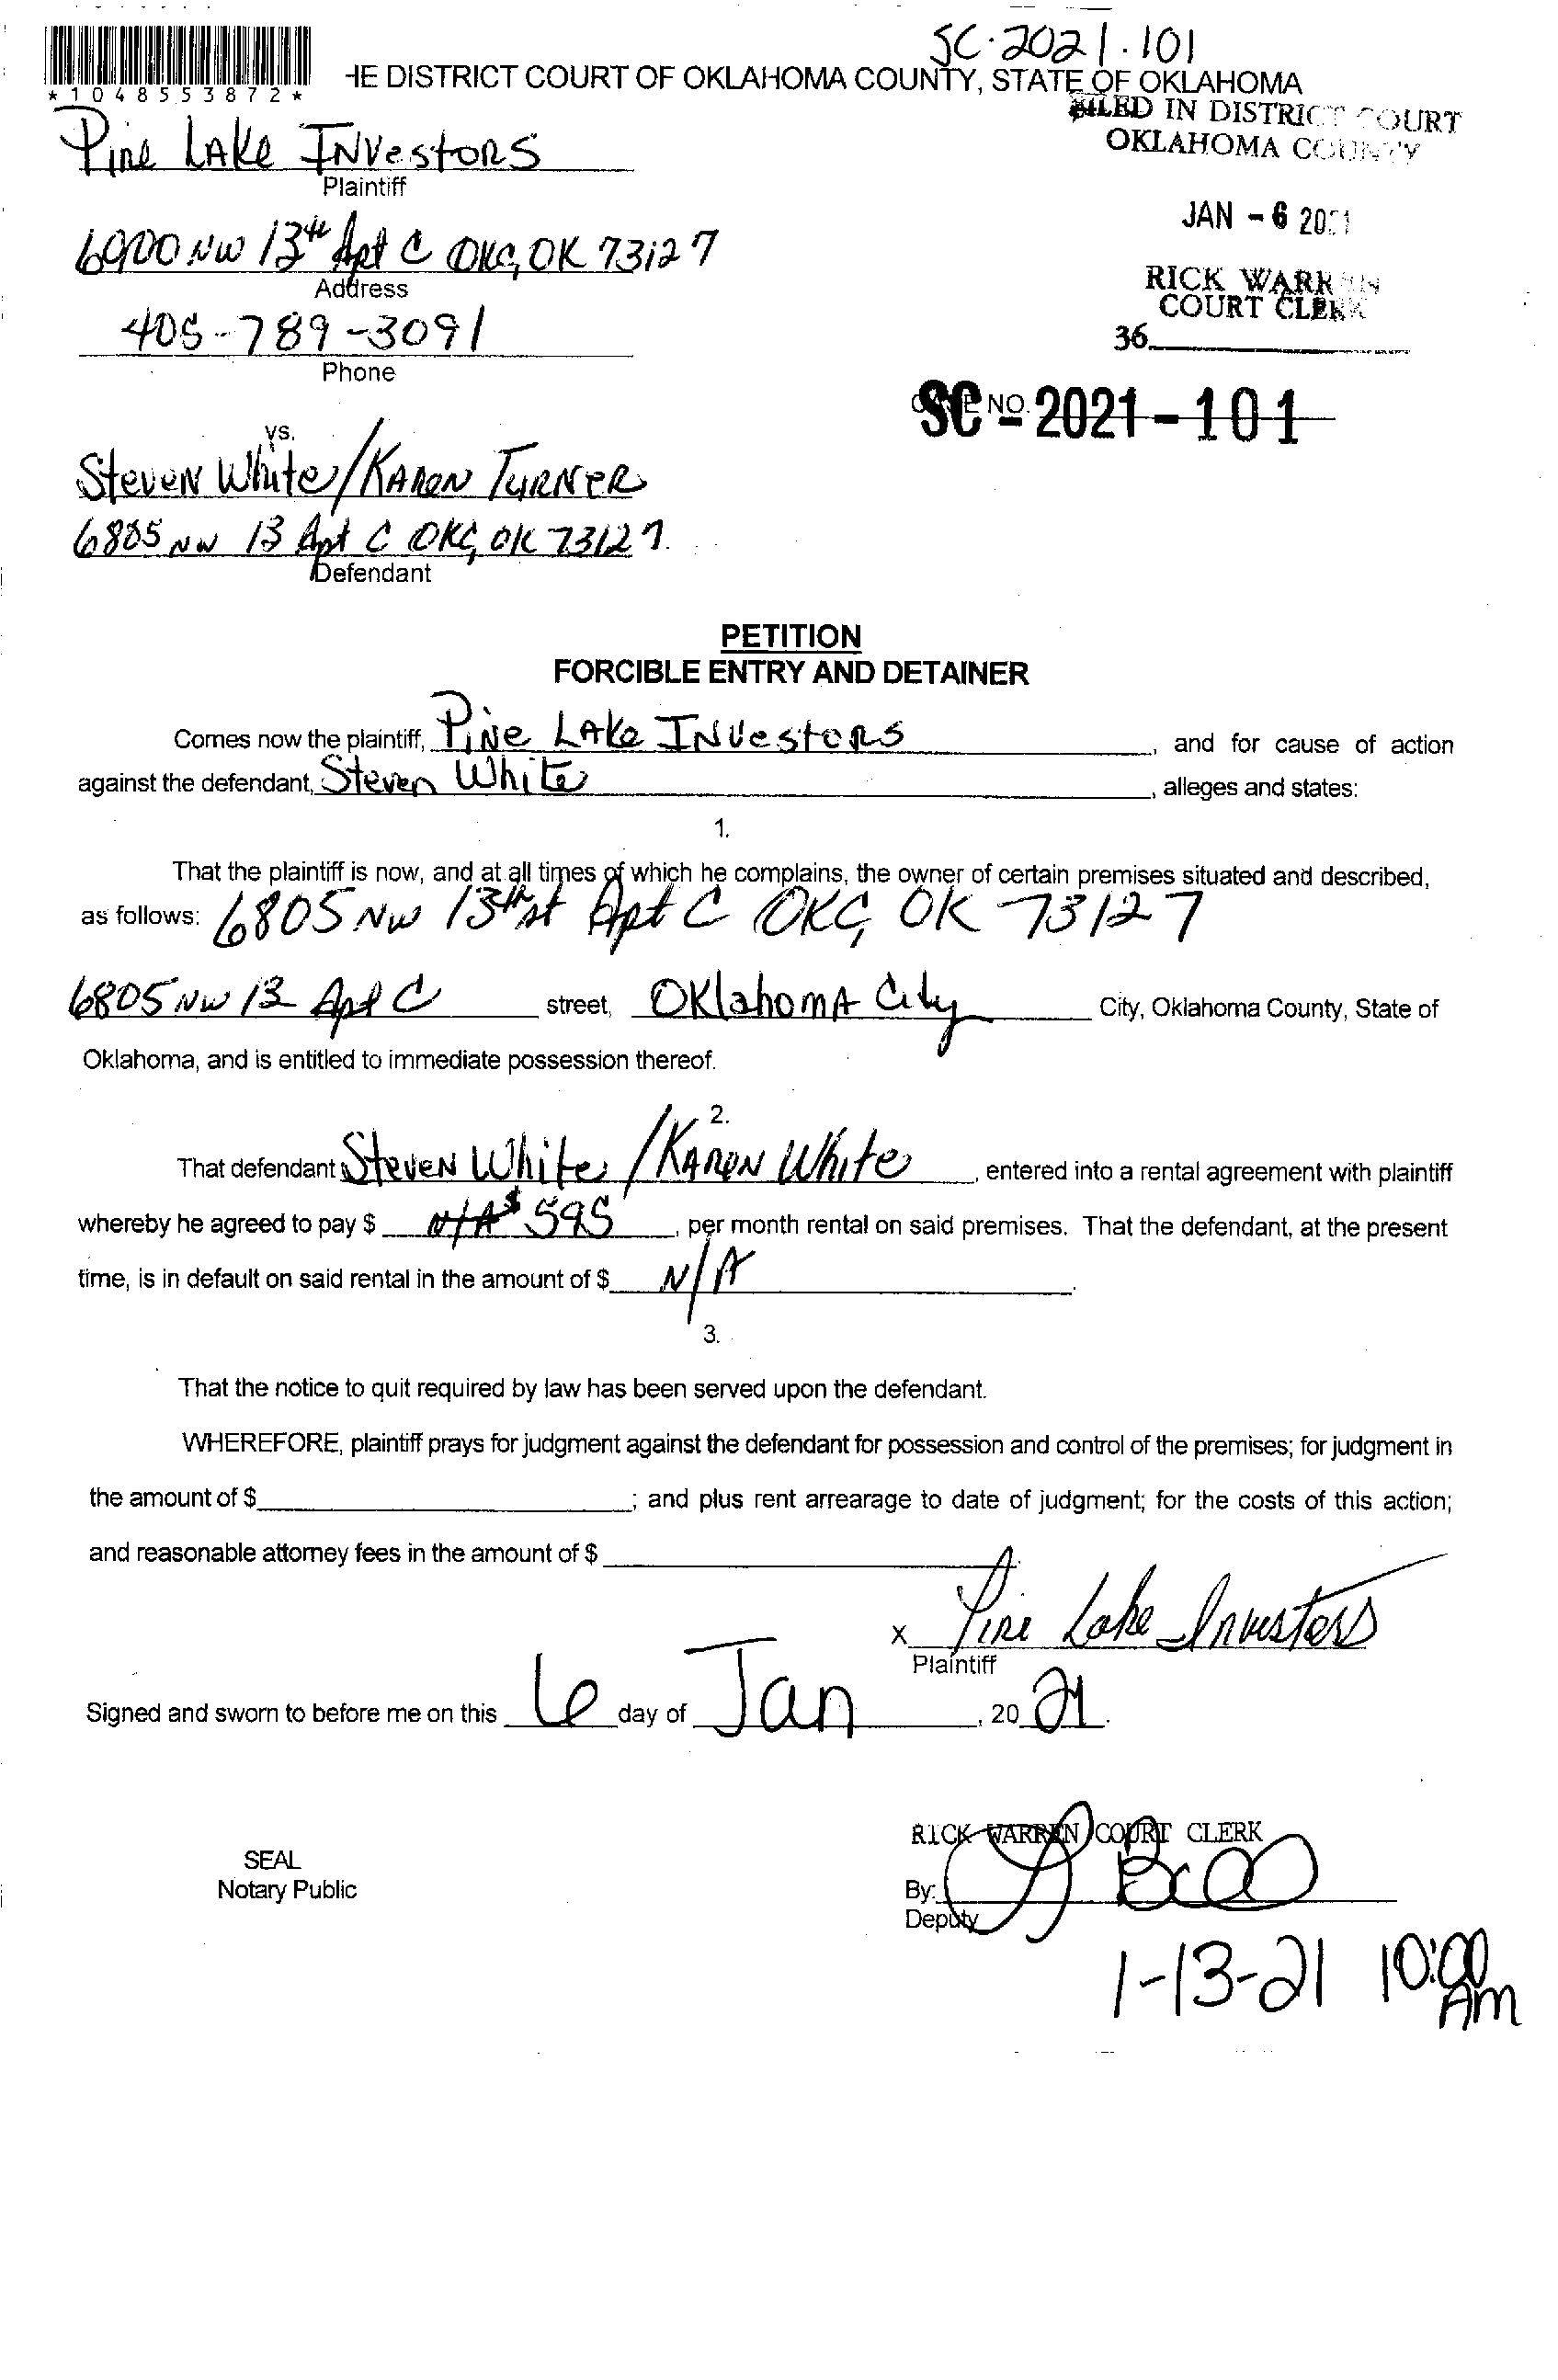 SC-2021-101
*1048553872*
HE DISTRICT COURT OF OKLAHOMA COUNTY, STATE OF OKLAHOMA
FILED IN DISTRICT COURT
OKLAHOMA COUNTY
Pine Lake Investors
Plaintiff
JAN - 6 2021
6900 NW 13th Apt C OKC, OK 73127
Address
RICK WARREN
COURT CLERK
405-789-3091
36
Phone
SC - NO. 2021 - 101
vs.
Steven White/Karen Turner
6805 NW 13 Apt C OKC, OK 73127
Defendant
PETITION
FORCIBLE ENTRY AND DETAINER
Comes now the plaintiff, Pine Lake Investors, and for cause of action
against the defendant, Steven White, alleges and states:
1.
That the plaintiff is now, and at all times of which he complains, the owner of certain premises situated and described,
as follows: 6805 NW 13th st Apt C OKC, OK 73127
6805 NW 13 Apt C street, Oklahoma City City, Oklahoma County, State of
Oklahoma, and is entitled to immediate possession thereof.
2.
That defendant Steven White /Karen White, entered into a rental agreement with plaintiff
whereby he agreed to pay $ N/A $595, per month rental on said premises. That the defendant, at the present
time, is in default on said rental in the amount of $ N/A.
3.
That the notice to quit required by law has been served upon the defendant.
WHEREFORE, plaintiff prays for judgment against the defendant for possession and control of the premises; for judgment in
the amount of $ ; and plus rent arrearage to date of judgment; for the costs of this action;
and reasonable attorney fees in the amount of $ .
x Pine Lake Investors
Plaintiff
Signed and sworn to before me on this 6 day of Jan, 20 21.
RICK WARREN COURT CLERK
SEAL
Notary Public
By:
Deputy
1-13-21 10:00 Am